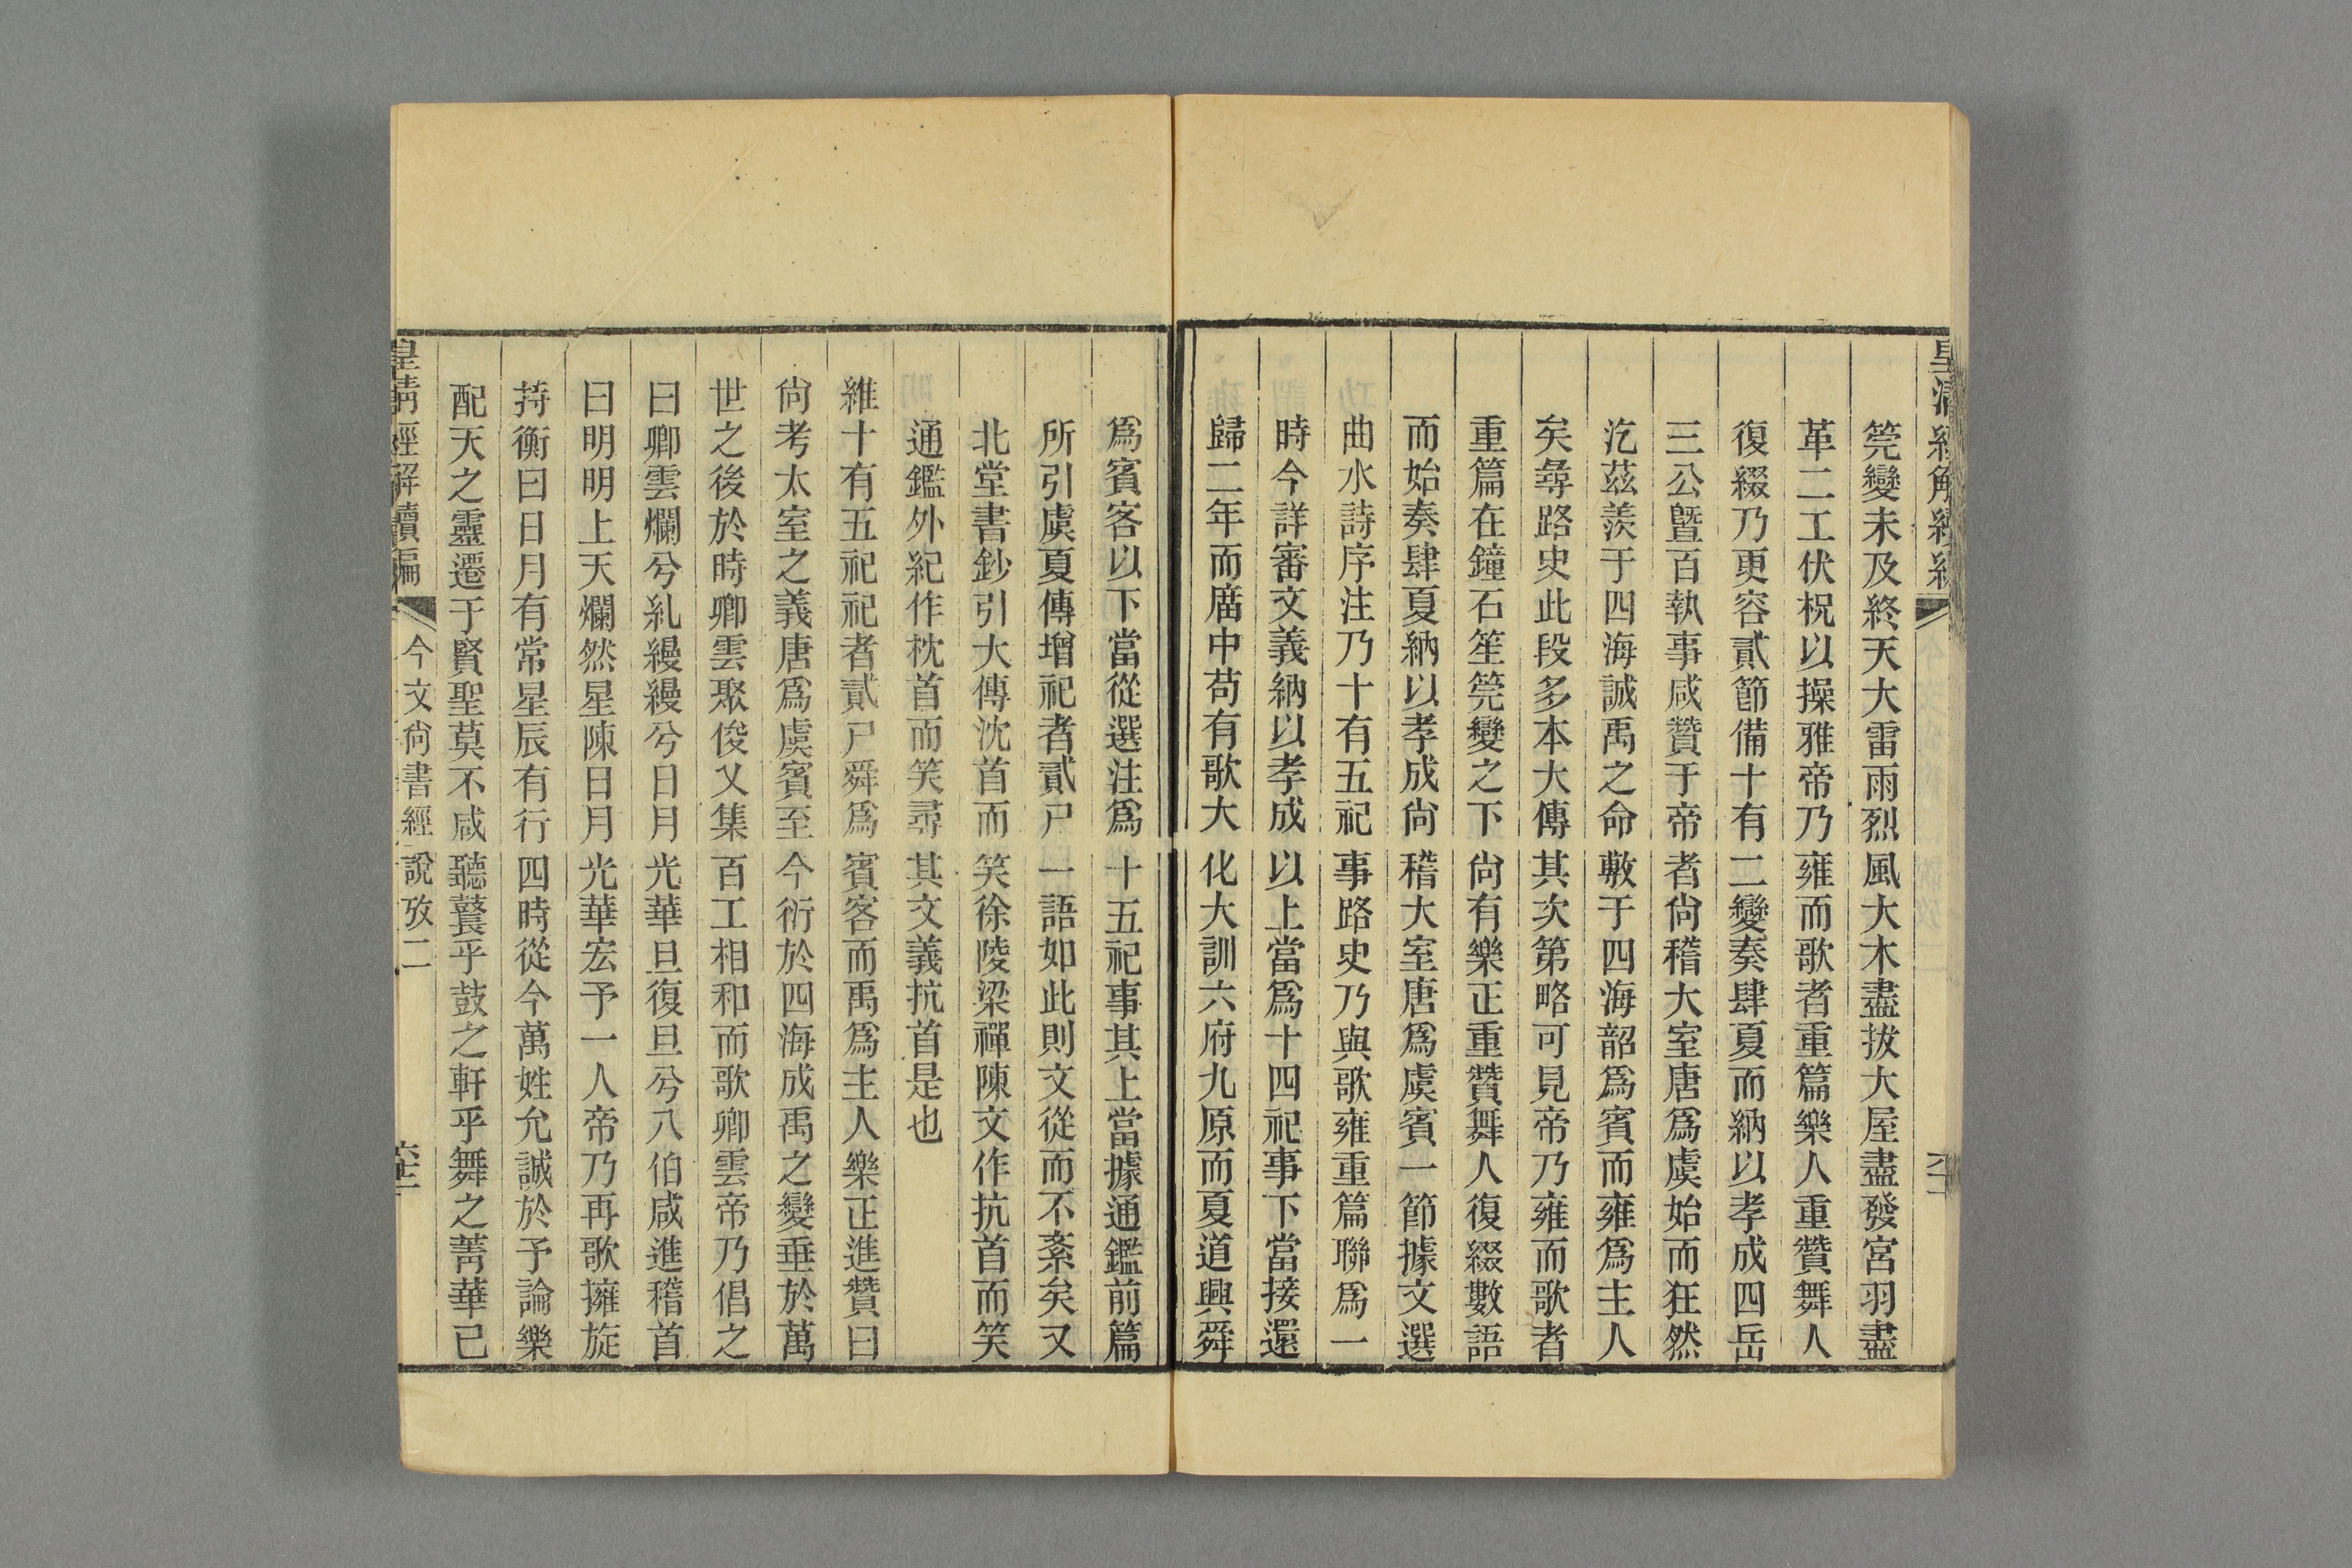 筦變未及終天大雷雨烈風大木盡拔大屋盡發宮羽盡
革二工伏柷以操雅帝乃雍而歌者重篇樂人重贊舞人
復綴乃更容貳節備十有二變奏肆夏而納以孝成四岳
三公曁百執事咸贊于帝者尙稽大室唐爲虞始而狂然
汔茲羨于四海誠禹之命敷于四海韶爲賓而雍爲主人
矣尋路史此段多本大傳其次第略可見帝乃雍而歌者
重篇在鐘石笙筦變之下尙有樂正重贊舞人復綴數語
而始奏肆夏納以孝成尙稽大室唐爲虞賓一節據文選
曲水詩序注乃十有五祀事路史乃與歌雍重篇聯爲一
時今詳審文義納以孝成以上當爲十四祀事下當接還
歸二年而廟中苟有歌大化大訓六府九原而夏道興舜
爲賓客以下當從選注爲十五祀事其上當據通鑑前篇
所引虞夏傳增祀者貳尸一語如此則文從而不紊矣又
北堂書鈔引大傳沈首而笑徐陵梁禪陳文作抗首而笑
通鑑外紀作枕首而笑尋其文義抗首是也
維十有五祀祀者貳尸舜爲賓客而禹爲主人樂正進贊曰
尙考太室之義唐爲虞賓至今衍於四海成禹之變垂於萬
世之後於時卿雲聚俊乂集百工相和而歌卿雲帝乃倡之
曰卿雲爛兮糺縵縵兮日月光華旦復旦兮八伯咸進稽首
曰明明上天爛然星陳日月光華宏予一人帝乃再歌擁旋
持衡曰日月有常星辰有行四時從今萬姓允誠於予論樂
配天之靈遷于賢聖莫不咸聽鼚乎鼓之軒乎舞之菁華已
皇淸經解續編 今文尙書經說攷二